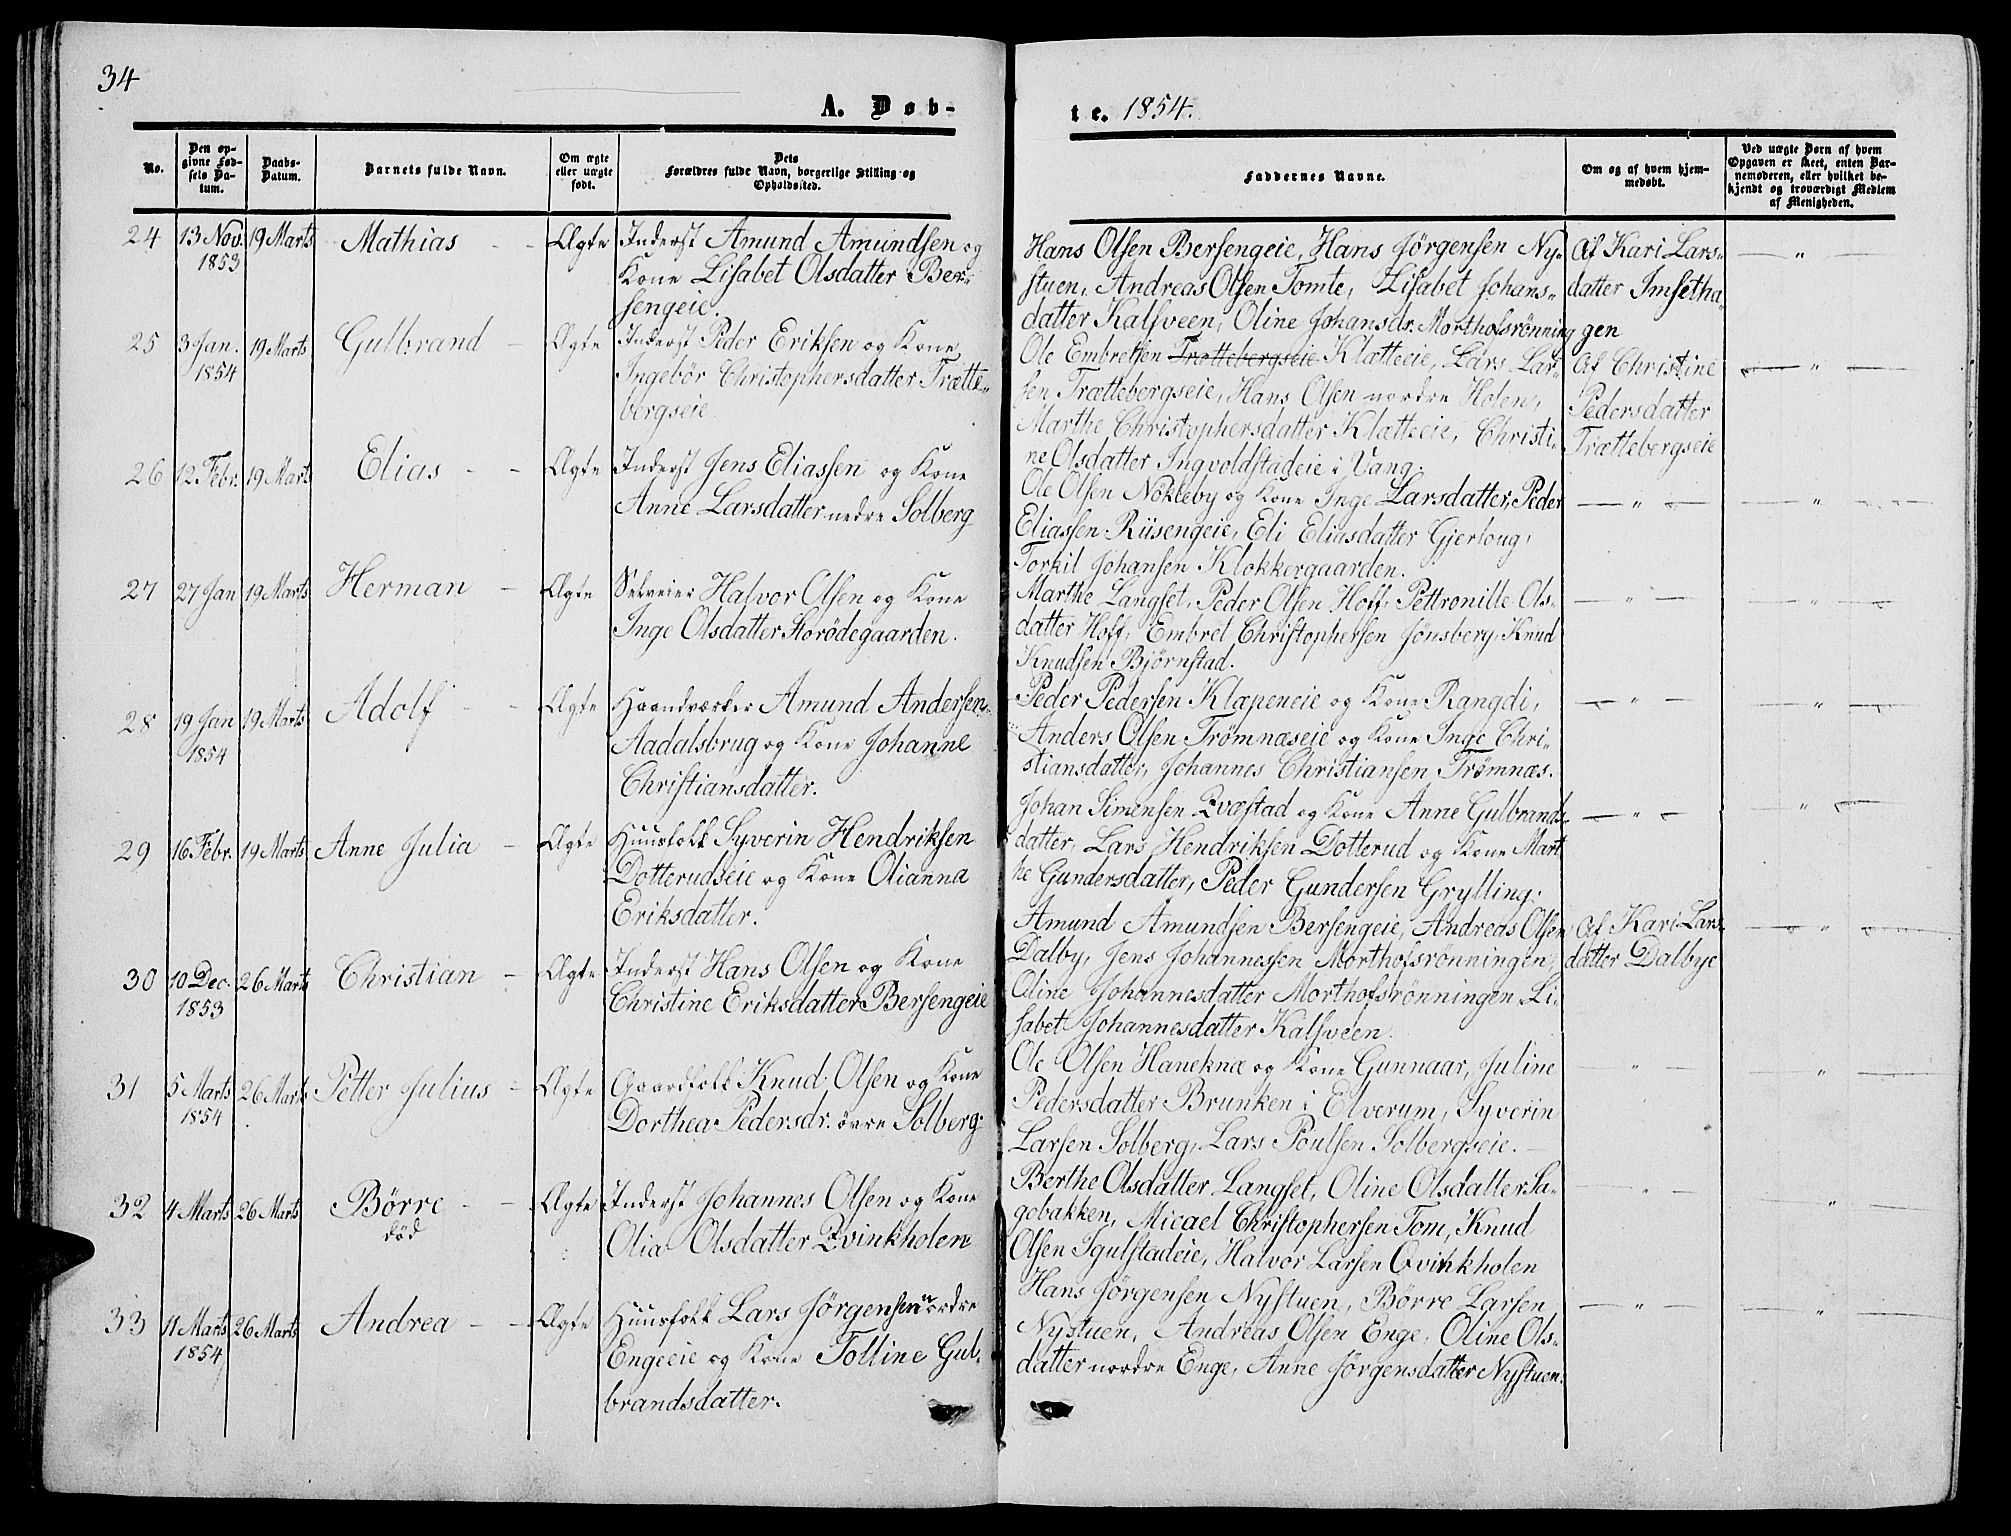 34
A. Døb-
te. 1854.
No.
Den op-
givne Fød-
sels Da-
tum.
Daabs-
Datum.
Barnets fulde Navn.
Om ægte
eller uægte
født.
Dets
Forældres fulde Navn, borgerlige Stilling og
Opholdssted.
Faddernes Navne.
Om og af hvem hjem-
medøbt.
Ved uægte Børn af hvem
Opgaven er skeet, enten Bar-
nemoderen, eller hvilket be-
kjendt og troværdigt Medlem
af Menigheden.
24 13 Nov. 19 Marts Mathias - - Ægte Inderst Amund Amundsen og
1853 Kone Lisabet Olsdatter Ber-
sengeie.
Hans Olsen Bersengeie, Hans Jörgensen Ny- Af Kari Lars- — „ —
stuen, Andreas Olsen Tomte, Lisabet Johans- datter Imsetha-
datter Kalsveen, Oline Johansdr. Morthofsrönning gen
25 3 Jan. 19 Marts Gulbrand - Ægte Inderst Peder Eriksen og Kone
1854 Ingebör Christophersdatter Trætte-
bergseie
Ole Embretsen Trættebergseie Klætteeie, Lars Lar- Af Christine — „ —
sen Trættebergseie, Hans Olsen nordre Holen, Pedersdatter
Marthe Christophersdatter Klætteeie, Christi- Trættebergseie
ne Olsdatter Ingvoldstadeie i Vang.
26 12 Febr. 19 Marts Elias - - Ægte Inderst Jens Eliassen og Kone
Anne Larsdatter nedre Solberg
Ole Olsen Nökleby og Kone Inge Larsdatter, Peder — „ — — „ —
Eliassen Riisengeie, Eli Eliasdatter Gjerloug,
Torkil Johansen Klokkergaarden.
27 27 Jan 19 Marts Herman - Ægte Selveier Halvor Olsen og Kone
Inge Olsdatter Storödegaarden.
Marthe Langset, Peder Olsen Hoff, Pettronille Ols- — „ — — „ —
datter Hoff, Embret Christophersen Jönsberg, Knud
Knudsen Björnstad.
28 19 Jan 19 Marts Adolf - - Ægte Haandværker Amund Andersen
1854 Aadalsbrug og Kone Johanne
Christiansdatter.
Peder Pedersen Klæpeneie og Kone Rangdi, — „ — — „ —
Anders Olsen Trömnæseie og Kone Inge Chri-
stiansdatter, Johannes Christiansen Trömnæs.
29 16 Febr. 19 Marts Anne Julia - Ægte Huusfolk Syverin Hendriksen
Dotterudseie og Kone Olianna
Eriksdatter.
Johan Simensen Qvæstad og Kone Anne Gulbrands- — „ — — „ —
datter, Lars Hendriksen Dotterud og Kone Mart
he Gundersdatter, Peder Gundersen Grylling.
30 10 Dec. 26 Marts Christian - Ægte Inderst Hans Olsen og Kone
1853 Christine Eriksdatter Bersengeie
Amund Amundsen Bersengeie, Andreas Olsen Af Kari Lars- — „ —
Dalby, Jens Johannessen Morthofsrönningen, datter Dalbye
Oline Johannesdatter Morthofsrönningen, Li-
sabet Johannesdatter Kalsveen.
31 5 Marts 26 Marts Petter Julius - Ægte Gaardfolk Knud Olsen og Kone
1854 Dorthea Pedersdr. övre Solberg
Ole Olsen Haneknæ og Kone Gunnaar, Juline — „ — „ —
Pedersdatter Brunken i Elverum, Syverin
Larsen Solberg, Lars Poulsen Solbergseie. —
32 4 Marts 26 Marts Börre - - Ægte Inderst Johannes Olsen og Kone
död Olia Olsdatter Qvinkholen
Berthe Olsdatter Langset, Oline Olsdatter Sa- — „ — „
gobakken, Micael Christophersen Tom, Knud
Olsen Igulstadeie, Halvor Larsen Qvinkholen
33 11 Marts 26 Marts Andrea - - Ægte Huusfolk Lars Jörgensen nordre
1854 Engeeie og Kone Tolline Gul-
brandsdatter.
Hans Jörgensen Nystuen, Börre Larsen — „ — — „ —
Nystuen, Andreas Olsen Enge, Oline Ols-
datter nordre Enge, Anne Jörgensdatter Nystuen.